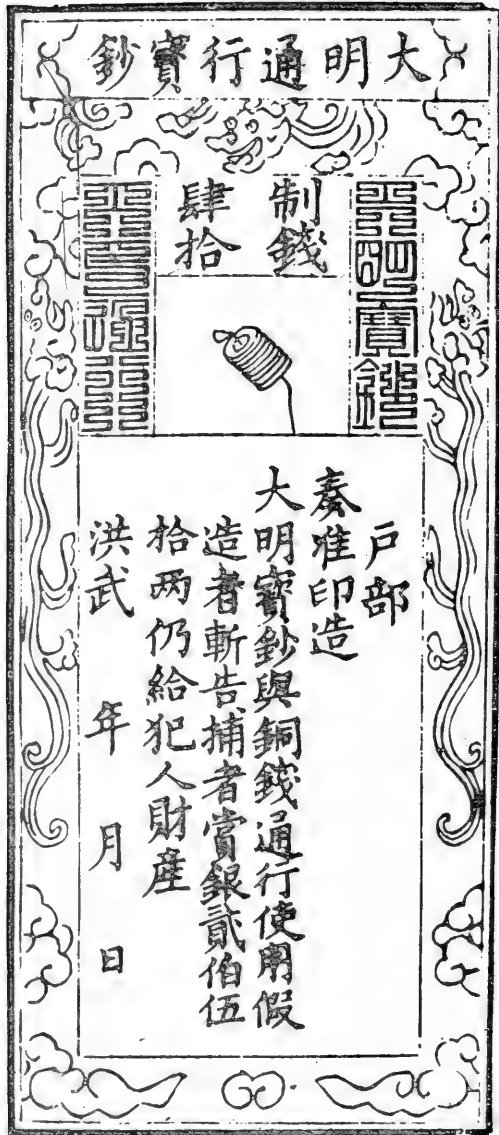 大明通行寶鈔
大明寶鈔
制錢
肆拾
天下通行
户部
奏准印造
大明寶鈔與銅錢通行使用假
造者斬告捕者賞銀貳伯伍
拾两仍給犯人財產
洪武 年 月 日